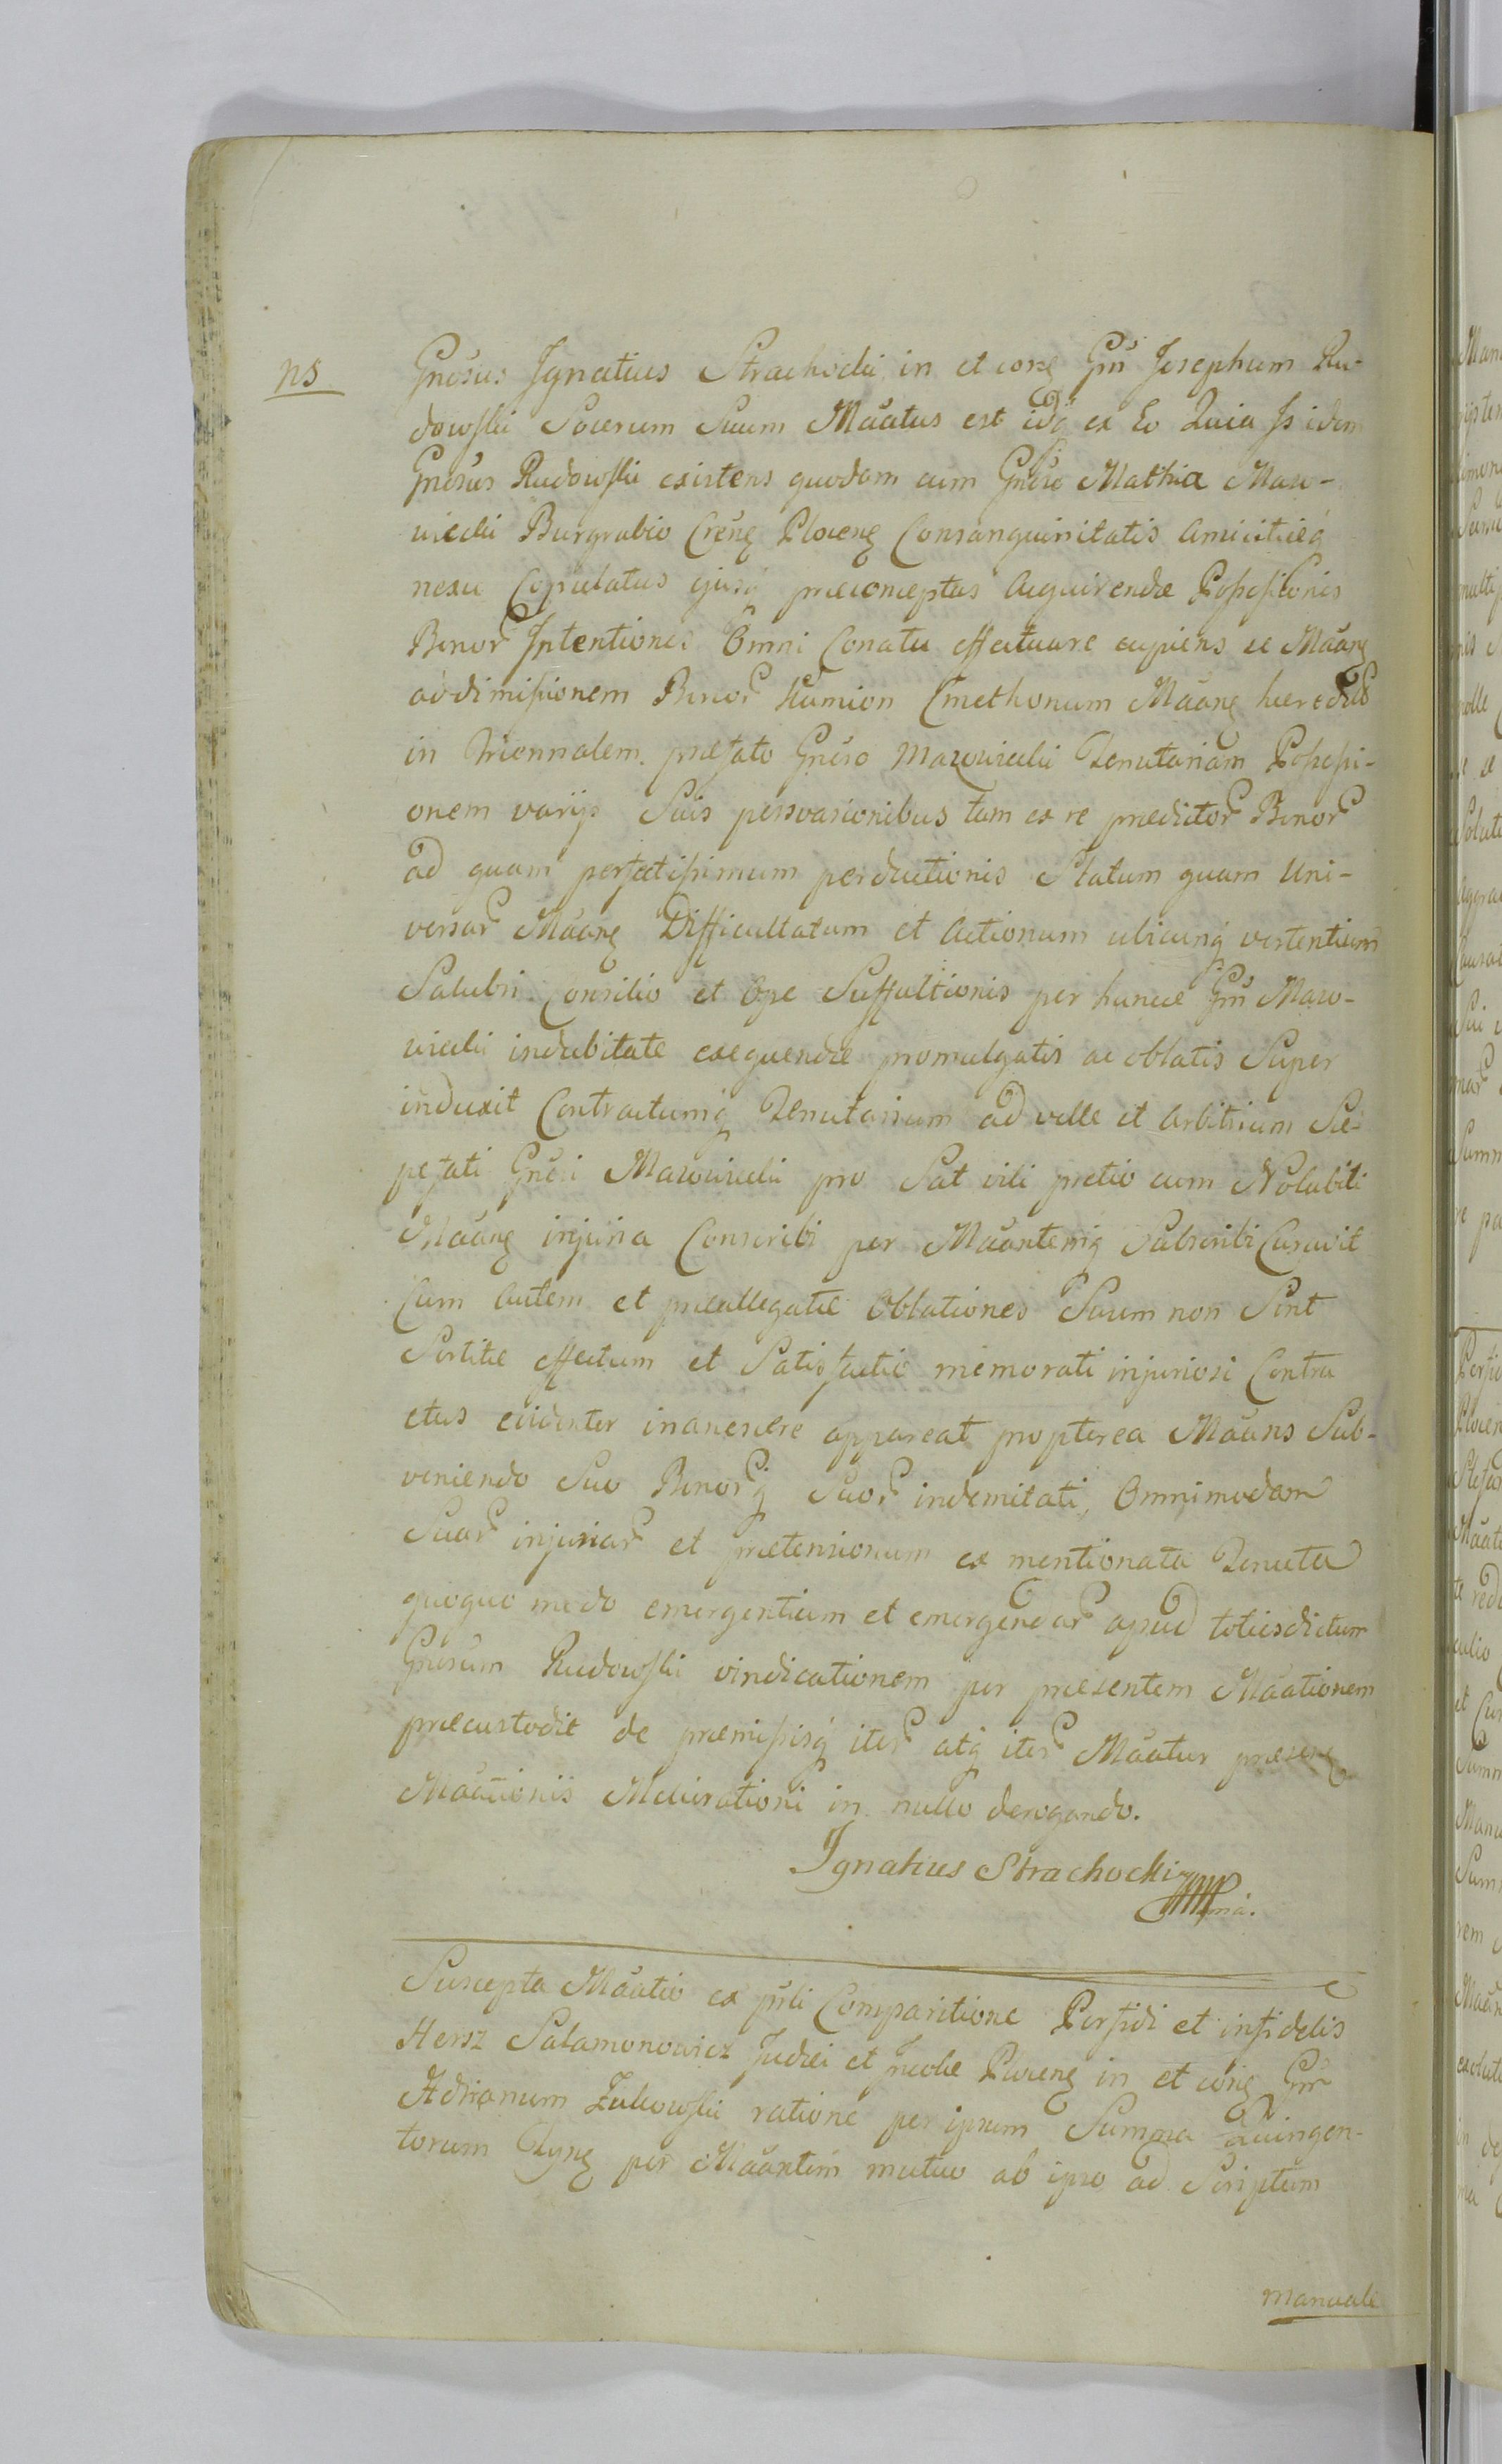 ns
Gnosus Ignatius Strachocki in et conq Gm Josephum Ru-
dowski Socerum Suum Māatus est idq ex Eo Quia Is idem
Gnosus Rudowski existens quodam cum Gnoso Mathia Maw-
uiecki Burgrabio Crēnq Plocenq Consanguinitatis Amicitieq
nexu Copulatus ejusq præconceptas Acquirendæ Possessionis
Bonor Intentiones Omni Conatu effectuare cupiens ac Māanq
ad dimissionem Bonor Kamion Cmethonum Māanq hæred
in Triennalem præfato Gnoso Mawuiecki Tenutariam Possessi-
onem varijs Suis persvasionibus tam ex re prædictor Bonor
ad quam perfectissimum perductionis Statum quam Uni-
versar Māanq Difficultatum et Actionum ubicunq vertentium
Salubri Consilio et Ope Suffultionis per huncce Gm Maw-
uiecki indubitate exequendæ promulgatis ac oblatis Super
induxit Contractumq Tenutarium ad velle et Arbitrium Sæ-
pefati Gnosi Mawuiecki pro Sat vili pretio cum Notabili
Māanq injuria Conscribi per Māantemq Subscribi Curavit
Cum Autem et præallegatæ Oblationes Suum non Sint
Sortitæ effectum et Satisfactio memorati injuriosi Contra
ctus evidenter inanescere appareat propterea Māans Sub-
veniendo Suo Bonorq Suor indemitati, Omnimodam
Suar injuriar et prætensionum ex mentionata Tenuta
quoquo modo emergentium et emergendar apud totiesdictum
Gnosum Rudowski vindicationem per præsentem Māationem
præcustodit de præmissisq iter atq iter Māatur præsenq
Māationis Meliorationi in nullo derogando.
Ignatius Strachocki
mā.
Suscepta Māatio ex pñli Comparitione Perfidi et infidelis
Hersz Salamonowicz Judæi et Incolæ Plocenq in et conq Gm
Adrianum Zukowski ratione per ipsum Summa Quingen-
torum Tynq per Māantem mutuo ab ipso ad Scriptum
manuale